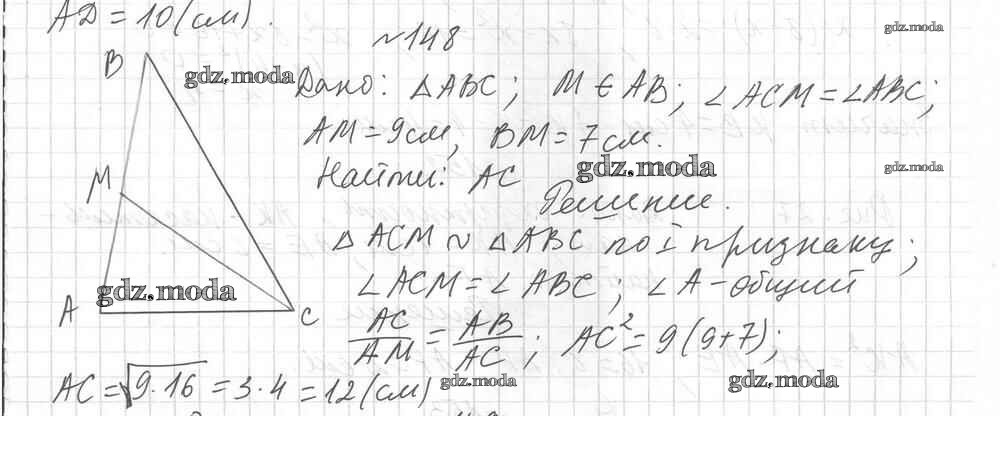 AD = 10 (см).
~148
gdz.moda
B
gdz.moda
Дано: △ABC; M ∈ AB; ∠ACM = ∠ABC;
AM = 9 см, BM = 7 см.
Найти: AC
gdz.moda
gdz.moda
Решение.
M
△ACM ~ △ABC по I признаку;
∠ACM = ∠ABC; ∠A - общий
gdz.moda
A
C
AC/AM = AB/AC; AC² = 9(9+7);
AC = √9·16 = 3·4 = 12 (см)
gdz.moda
gdz.moda